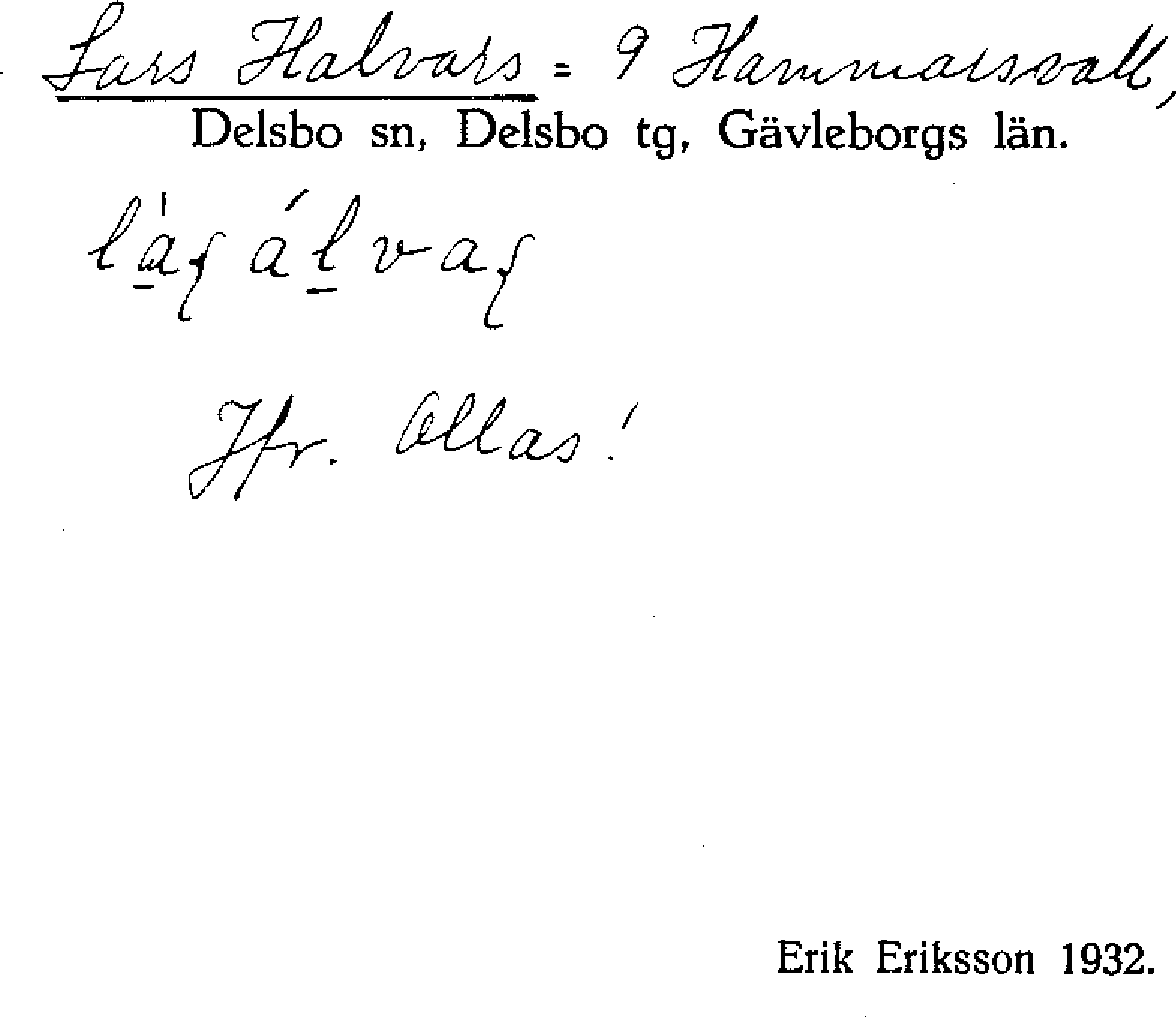 Lars Halvars = 9 Hammarsvall,
Delsbo sn, Delsbo tg, Gävleborgs län.
Jfr. Ollas!
Erik Eriksson 1932.